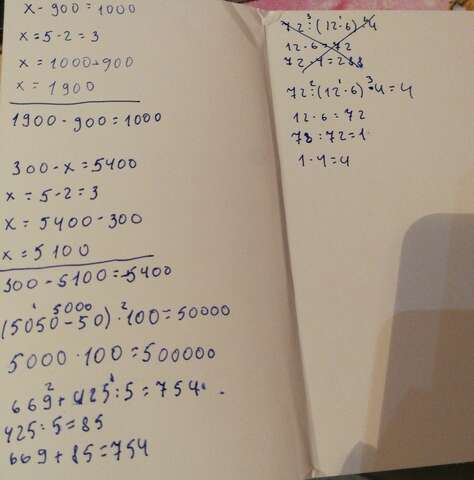 x - 900 = 1000
x = 5 - 2 = 3
x = 1000 + 900
x = 1900
1900 - 900 = 1000
300 - x = 5400
x = 5 - 2 = 3
x = 5400 - 300
x = 5100
300 - 5100 = 5400
1 5000 2
(5050 - 50) · 100 = 50000
5000 · 100 = 500000
2 1
669 + 425 : 5 = 754
425 : 5 = 85
669 + 85 = 754
3 1
72 : (12 · 6) · 4
12 · 6 = 72
72 · 4 = 288
2 1 3
72 : (12 · 6) · 4 = 4
12 · 6 = 72
72 : 72 = 1
1 · 4 = 4